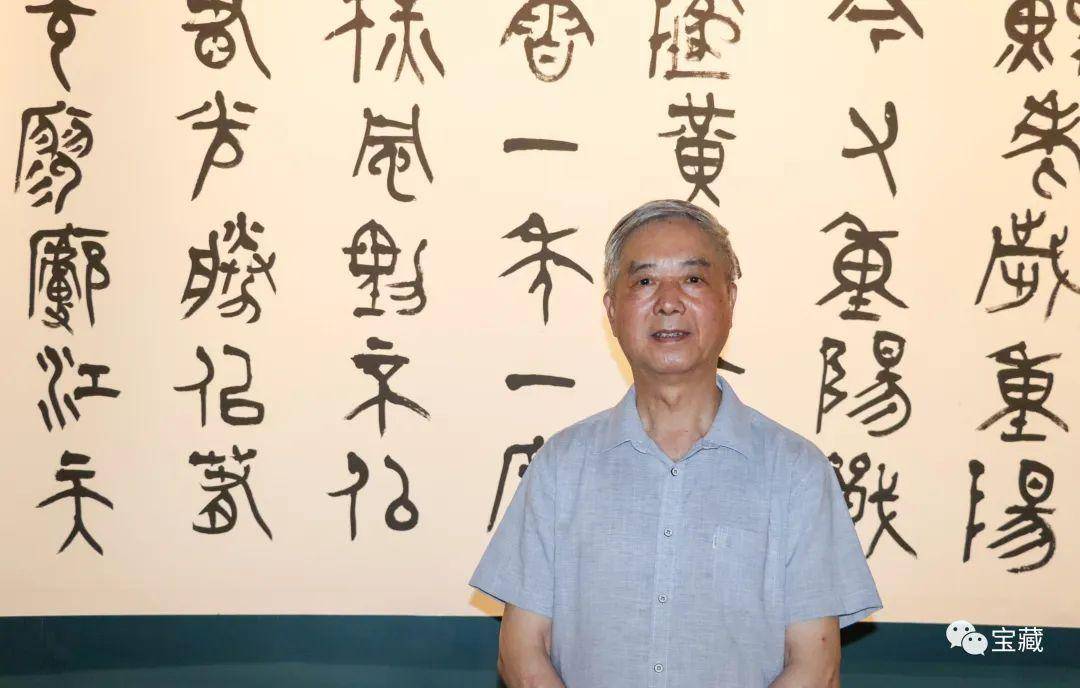 老歲重陽
今又重陽戰
地黃
香一年一
秋風勁不似
春光勝似春
光寥廓江天
宝藏